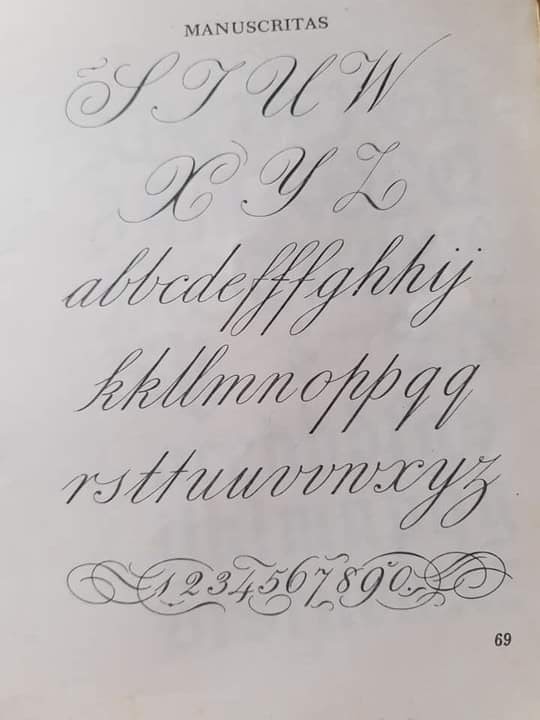 MANUSCRITAS
S T U W
X Y Z
abbcdefffghhij
kkllmnoppqq
rsttuuvvwxyz
1234567890
69